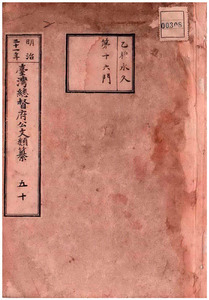 00305
乙種永久
第十六門
明治
三十一年
臺灣總督府公文類纂
五十